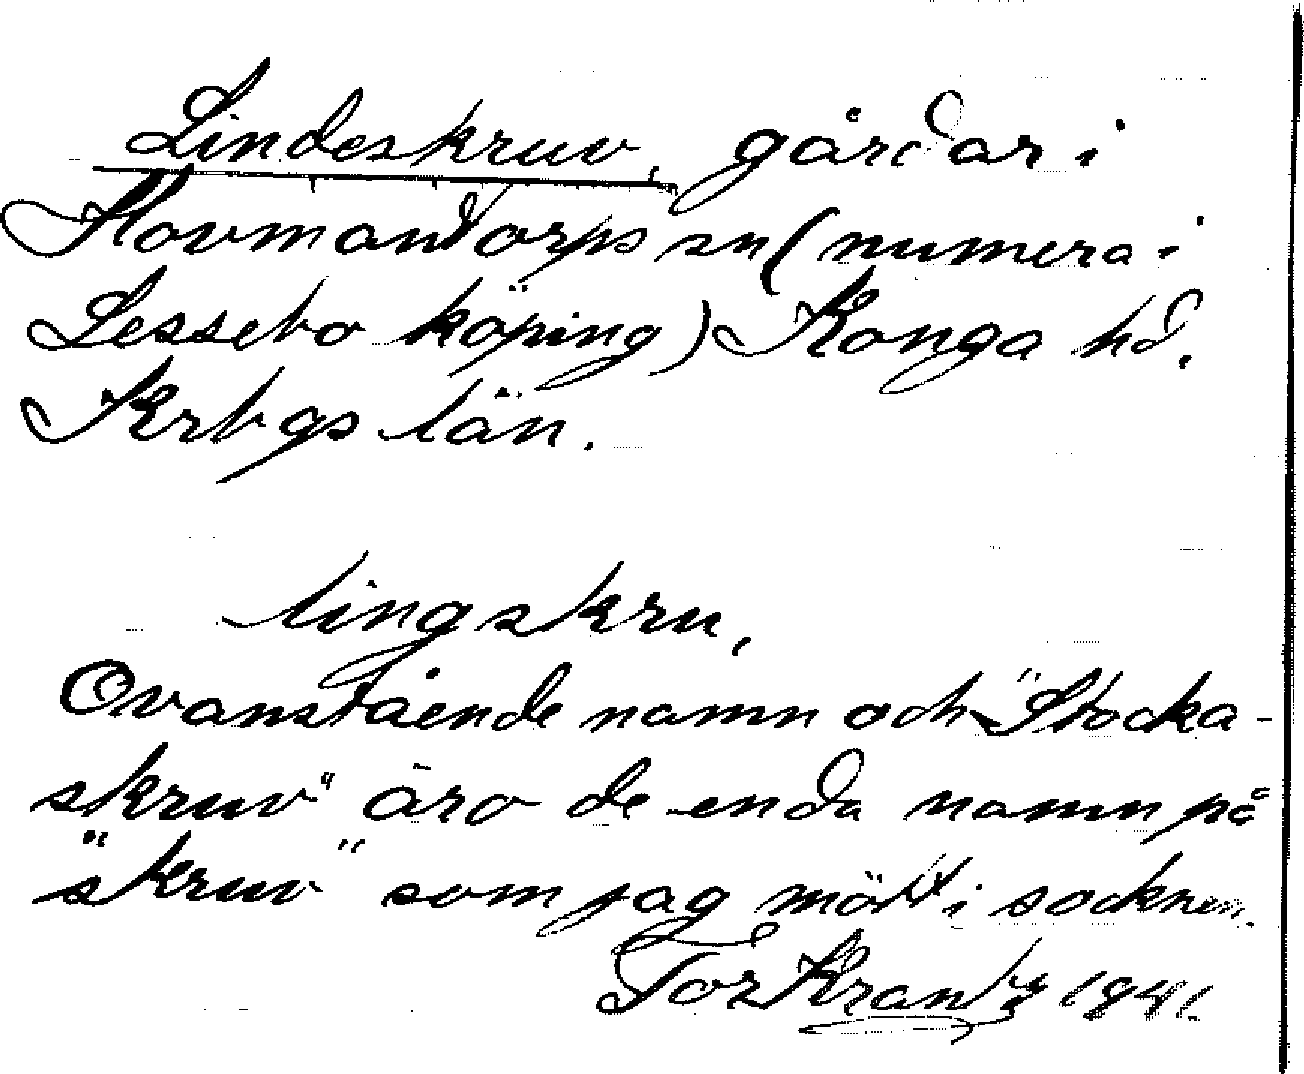 Lindeskruv, gårdar i
Hovmantorps sn (numera i
Lessebo köping) Konga hd.
Krbgs län.
lingskru,
Ovanstående namn och "Stocka-
skruv" äro de enda namn på
"skruv" som jag mött i socknen.
Tor Krantz 1941.